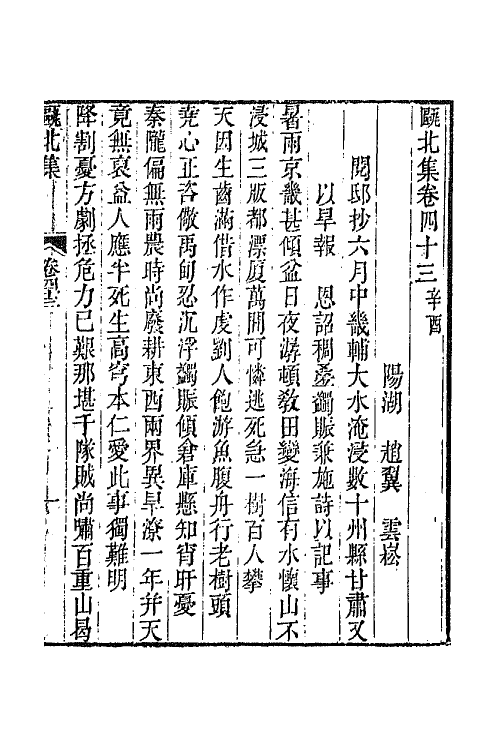 甌北集卷四十三 辛酉
陽湖 趙翼 雲崧
閱邸抄六月中畿輔大水淹浸數十州縣甘肅又
以旱報 恩詔稠疊蠲賑兼施詩以記事
暑雨京畿甚傾盆日夜潺頓敎田變海信有水懷山不
浸城三版都漂厦萬間可憐逃死急一樹百人攀
天因生齒滿借水作虔劉人飽游魚腹舟行老樹頭
堯心正咨儆禹甸忍沉浮蠲賑傾倉庫懸知宵旰憂
秦隴偏無雨農時尚廢耕東西兩界異旱潦一年并天
竟無裒益人應半死生高穹本仁愛此事獨難明
降割憂方劇拯危力已艱那堪千隊賊尚嘯百重山曷
甌北集 卷四十三 一